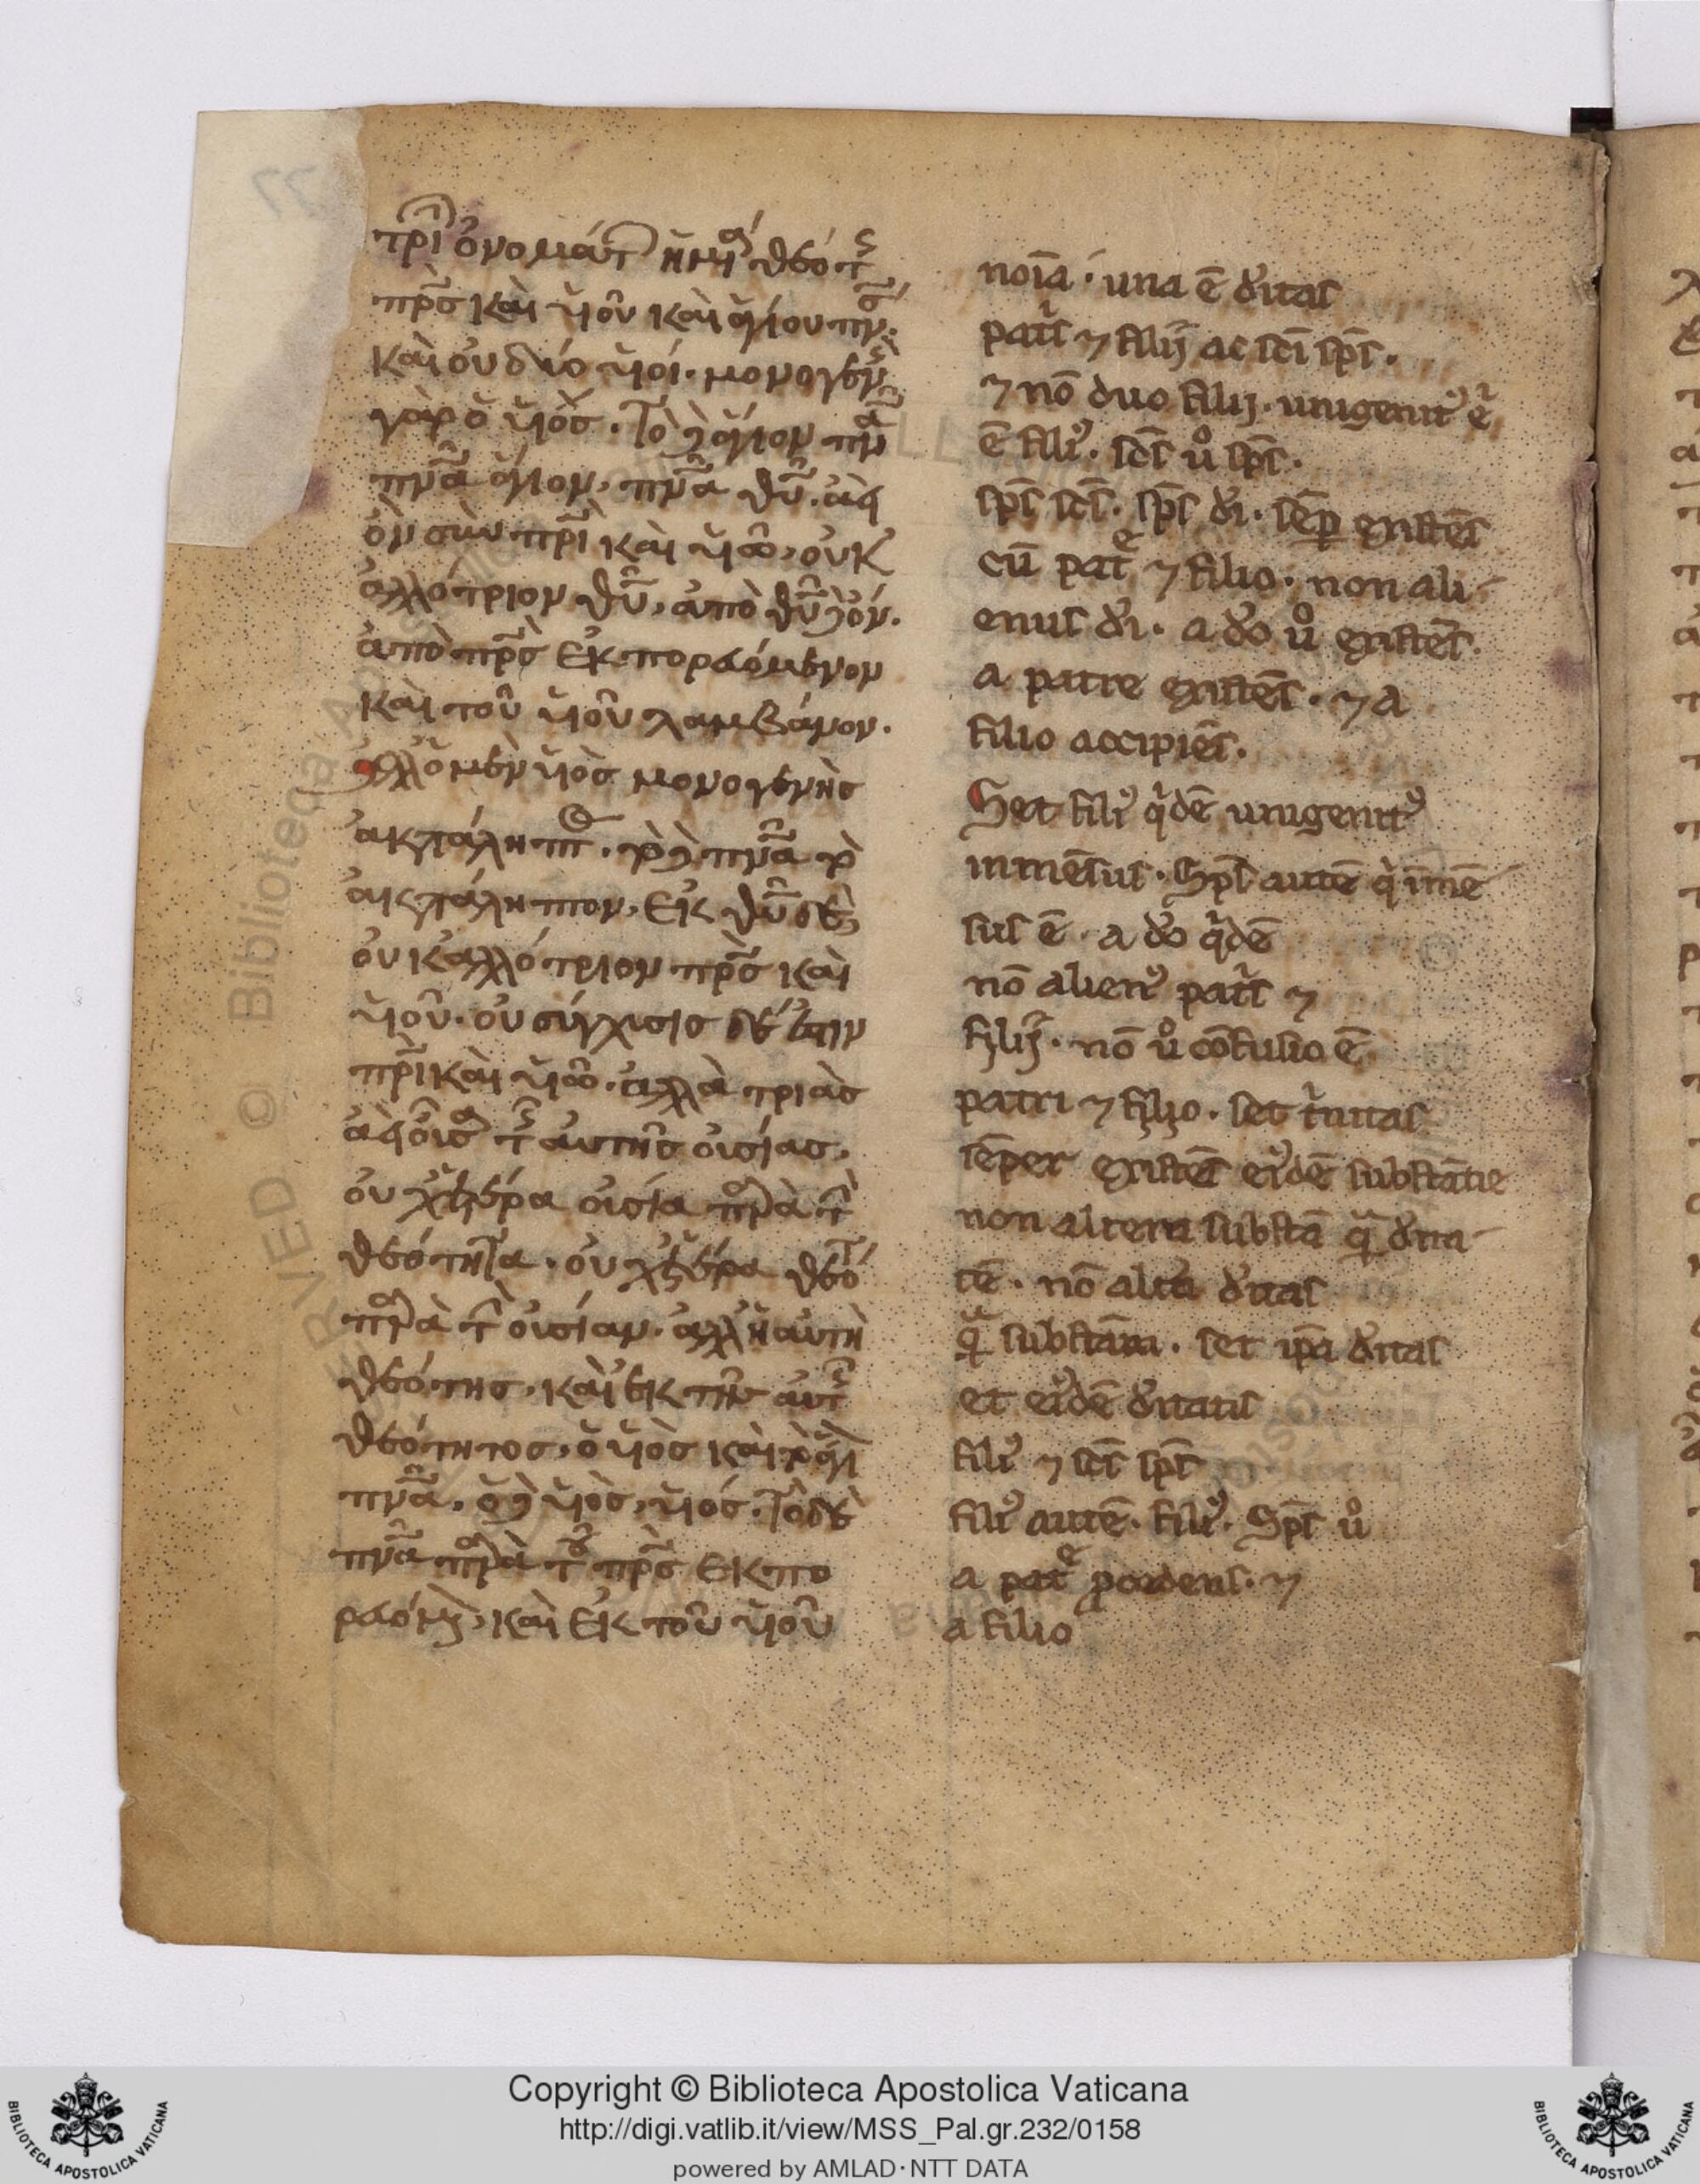 τρι ὀνομάτ ἡ μία θεότς
πρς καὶ υἱοῦ καὶ ἁγίου πνς.
καὶ οὐ δύο υἱοί. μονογενὴς
γὰρ ὁ υἱός. τὸ δὲ ἅγιον πνα
πνα ἅγιον, πνα θυ. ἀεὶ
ὂν σὺν πρὶ καὶ υἱῶ, οὐκ
ἀλλότριον θυ, ἀπὸ θυ δὲ ὄν.
ἀπὸ πρς ἐκπορευόμενον
καὶ τοῦ υἱοῦ λαμβάνον.
ἀλλ' ὁ μὲν υἱὸς μονογενὴς
ἀκατάληπτος. τὸ δὲ πνα τὸ
ἀκατάληπτον, ἐκ θυ δὲ
οὐκ ἀλλότριον πρς καὶ
υἱοῦ. οὐ σύγχισις δέ ἐστιν
πρὶ καὶ υἱῶ. ἀλλὰ τριὰς
ἀεὶ οὖσα τῆς αὐτῆς οὐσίας,
οὐχ ἑτέρα οὐσία παρὰ τὴν
θεότητα. οὐχ ἑτέρα θεότ
παρὰ τὴν οὐσίαν. ἀλλ' ἡ αὐτὴ
θεότης, καὶ ἐκ τῆς αὐτῆς
θεότητος, ὁ υἱὸς καὶ τὸ ἅγι
πνα. ὁ δὲ υἱὸς, υἱός. τὸ δὲ
πνα παρὰ τοῦ πρς ἐκπο
ρευόμν, καὶ ἐκ τοῦ υἱοῦ
noīa · una ē d̓itas
pat̓s ⁊ filij ac sc̄i sp̄s.
⁊ nō duo filij · unigenit᷒ e̓
ē fili᷒. sc̄s ů sp̄s.
sp̄s sc̄s. sp̄s d̓i. sēp existēs
cū patͤ ⁊ filio · non ali-
enus d̓i. a d̓o ů existēs.
a patre existēs. ⁊ a
filio accipiēs.
Set fili᷒ q̓dē unigenit᷒
inmēsus. Sp̄s autē q̓ īmē-
sus ē. a d̓o q̓dē
nō alien᷒ pat̓s ⁊
filij. nō ů cōfusio ē
patri ⁊ filio. set t̓nitas
sēper existēs ei᷒dē substātie
non altera substā q̄ d̓ita-
tē. nō alt̓a d̓itas
q̄ substām. set ip̄a d̓itas
et ei᷒dē d̓itatis
fili᷒ ⁊ sc̄s sp̄s
fili᷒ autē. fili᷒. Sp̄s ů
a patͤ ꝓcedens. ⁊
a filio
Copyright © Biblioteca Apostolica Vaticana
http://digi.vatlib.it/view/MSS_Pal.gr.232/0158
powered by AMLAD·NTT DATA
BIBLIOTECA APOSTOLICA VATICANA
BIBLIOTECA APOSTOLICA VATICANA